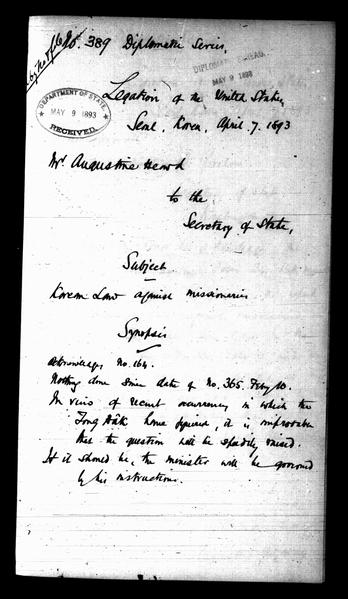 No. 389 Diplomatic Series.
DIPLOMATIC BUREAU,
MAY 9 1893
DEPARTMENT OF STATE,
MAY 9 1893
RECEIVED.
Legation of the United States,
Seoul, Korea, April 7. 1893
Mr Augustine Heard
to the
Secretary of State,
Subject
Korean Law against missionaries
Synopsis
Acknowledges No. 164.
Nothing done since date of No. 365. Feby 10.
In view of recent occurrences in which the
Tong Hâk have figured, it is improbable
that the question will be speedily raised.
If it should be, the minister will be governed
by his instructions.